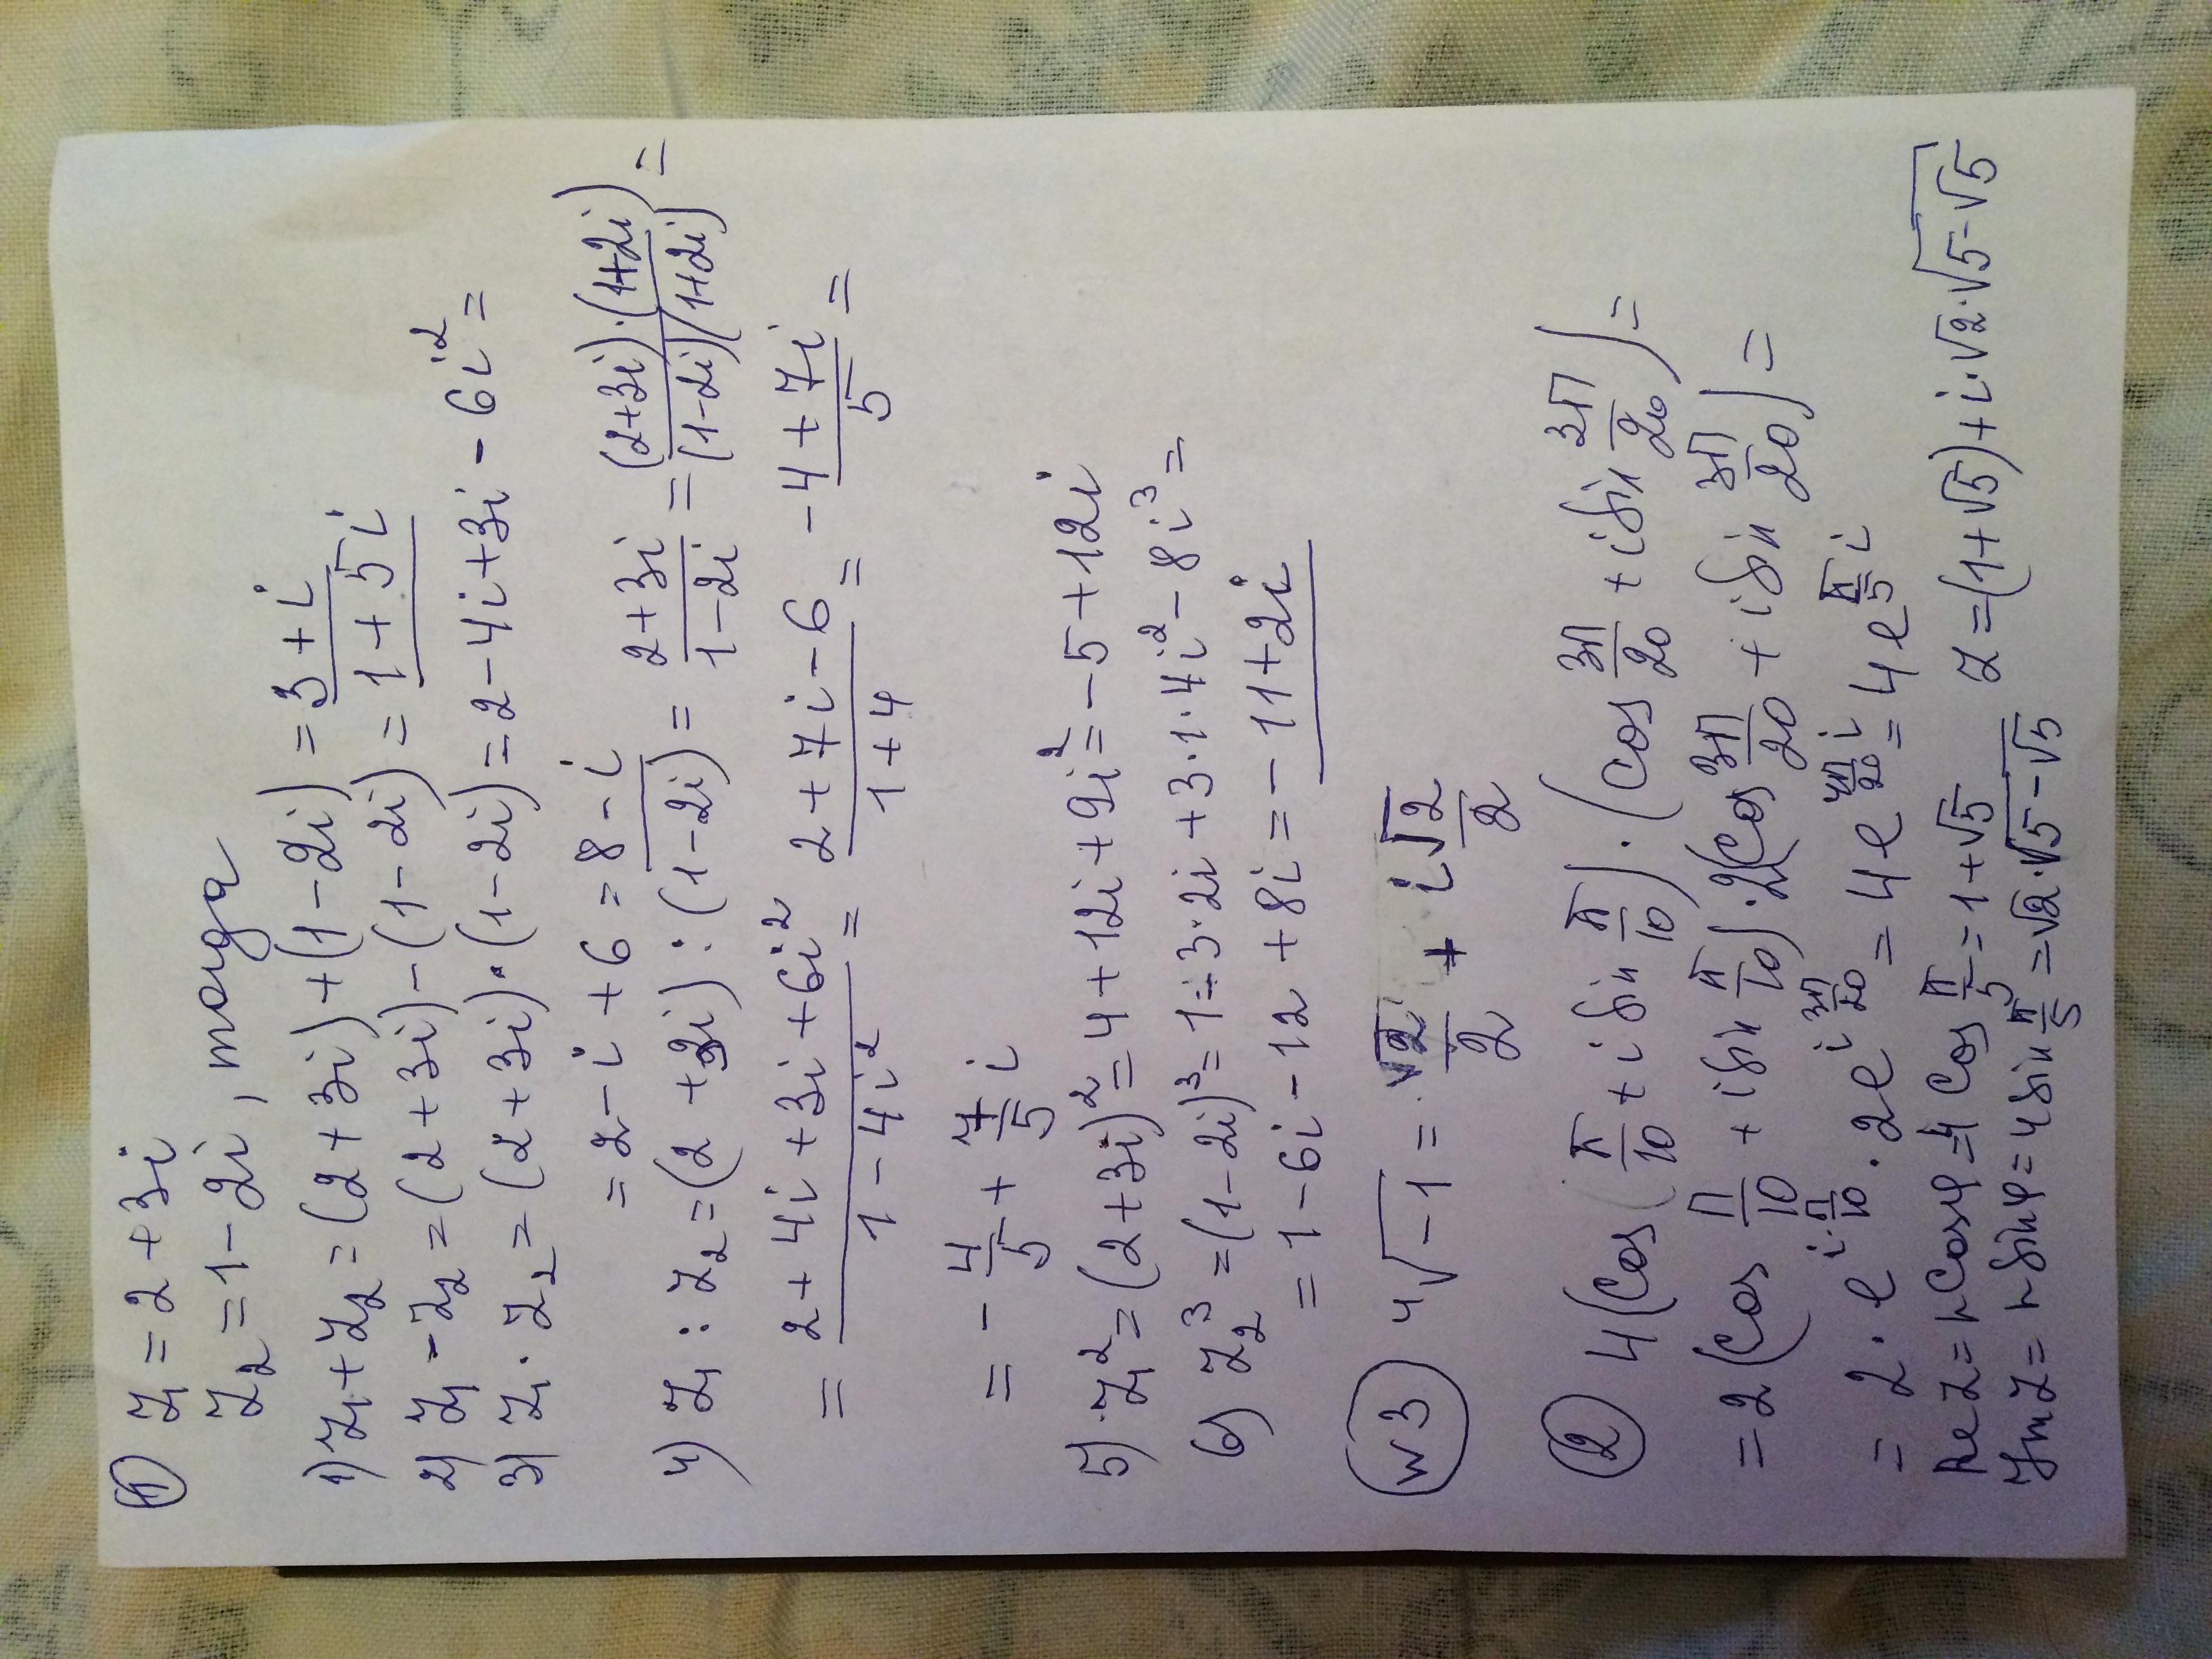 ① z₁ = 2 + 3i
z₂ = 1 - 2i, тогда
1) z₁ + z₂ = (2 + 3i) + (1 - 2i) = 3 + i
2) z₁ - z₂ = (2 + 3i) - (1 - 2i) = 1 + 5i
3) z₁ · z₂ = (2 + 3i) · (1 - 2i) = 2 - 4i + 3i - 6i² =
= 2 - i + 6 = 8 - i
4) z₁ : z₂ = (2 + 3i) : (1 - 2i) = \frac{2 + 3i}{1 - 2i} = \frac{(2+3i)·(1+2i)}{(1-2i)(1+2i)} =
= \frac{2 + 4i + 3i + 6i²}{1 - 4i²} = \frac{2 + 7i - 6}{1 + 4} = \frac{-4 + 7i}{5} =
= -\frac{4}{5} + \frac{7}{5} i
5) · z₁² = (2 + 3i)² = 4 + 12i + 9i² = -5 + 12i
6) z₂³ = (1 - 2i)³ = 1 - 3·2i + 3·1·4i² - 8i³ =
= 1 - 6i - 12 + 8i = -11 + 2i
№3 ⁴√-1 = \frac{√2}{2} + i\frac{√2}{2}
② 4(cos\frac{π}{10} + i sin\frac{π}{10}) · (cos\frac{3π}{20} + i sin\frac{3π}{20}) =
= 2(cos\frac{π}{10} + i sin\frac{π}{10}) · 2(cos\frac{3π}{20} + i sin\frac{3π}{20}) =
= 2 · e^{i·\frac{π}{10}} · 2e^{i\frac{3π}{20}} = 4e^{\frac{4π}{20}i} = 4e^{\frac{π}{5}i}
Re z = r cosφ = 4 cos\frac{π}{5} = 1 + √5 z = (1 + √5) + i·√2·√{5 - √5}
Im z = r sinφ = 4 sin\frac{π}{5} = √2·√{5 - √5}